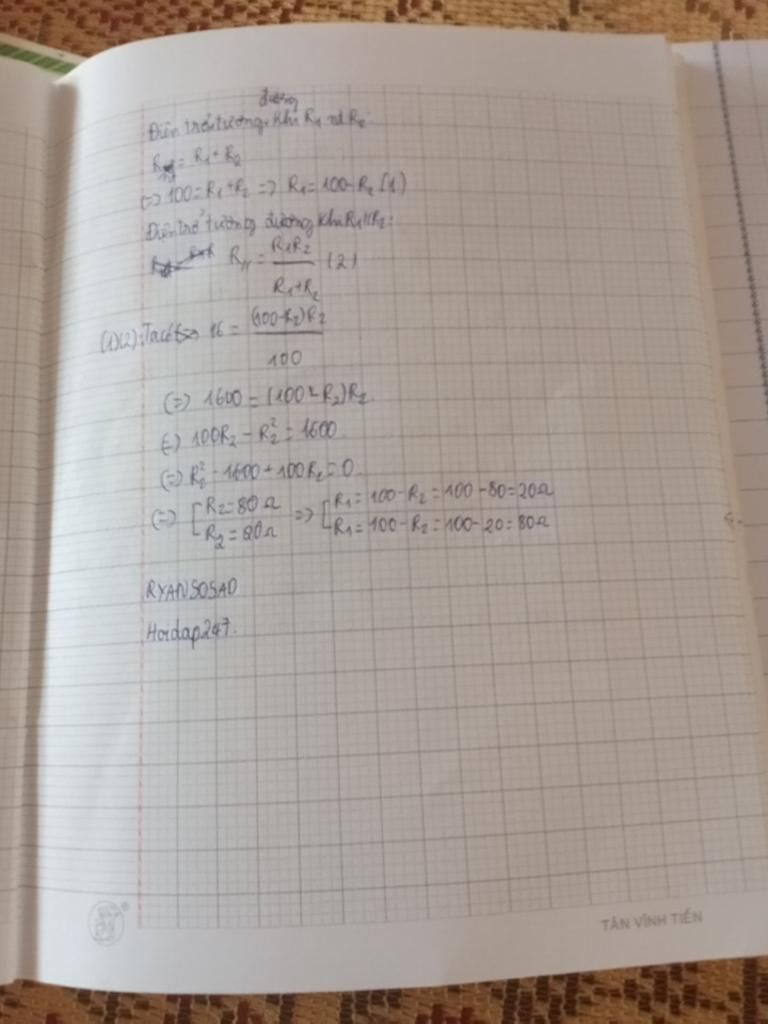 đương
Điện trở tương khi R₁ nt R₂:
Rnt = R₁ + R₂
(=) 100 = R₁ + R₂ => R₁ = 100 - R₂ (1)
Điện trở tương đương khi R₁ // R₂:
R// = R₁R₂ / R₁ + R₂ (2)
(1)(2): Ta có 16 = (100 - R₂)R₂ / 100
(=) 1600 = (100 - R₂)R₂
(=) 100R₂ - R₂² = 1600
(=) R₂² - 1600 + 100R₂ = 0
(=) [ R₂ = 80Ω => [ R₁ = 100 - R₂ = 100 - 80 = 20Ω
R₂ = 20Ω R₁ = 100 - R₂ = 100 - 20 = 80Ω
RYANSOSAD
Hoidap247.
TÂN VĨNH TIẾN